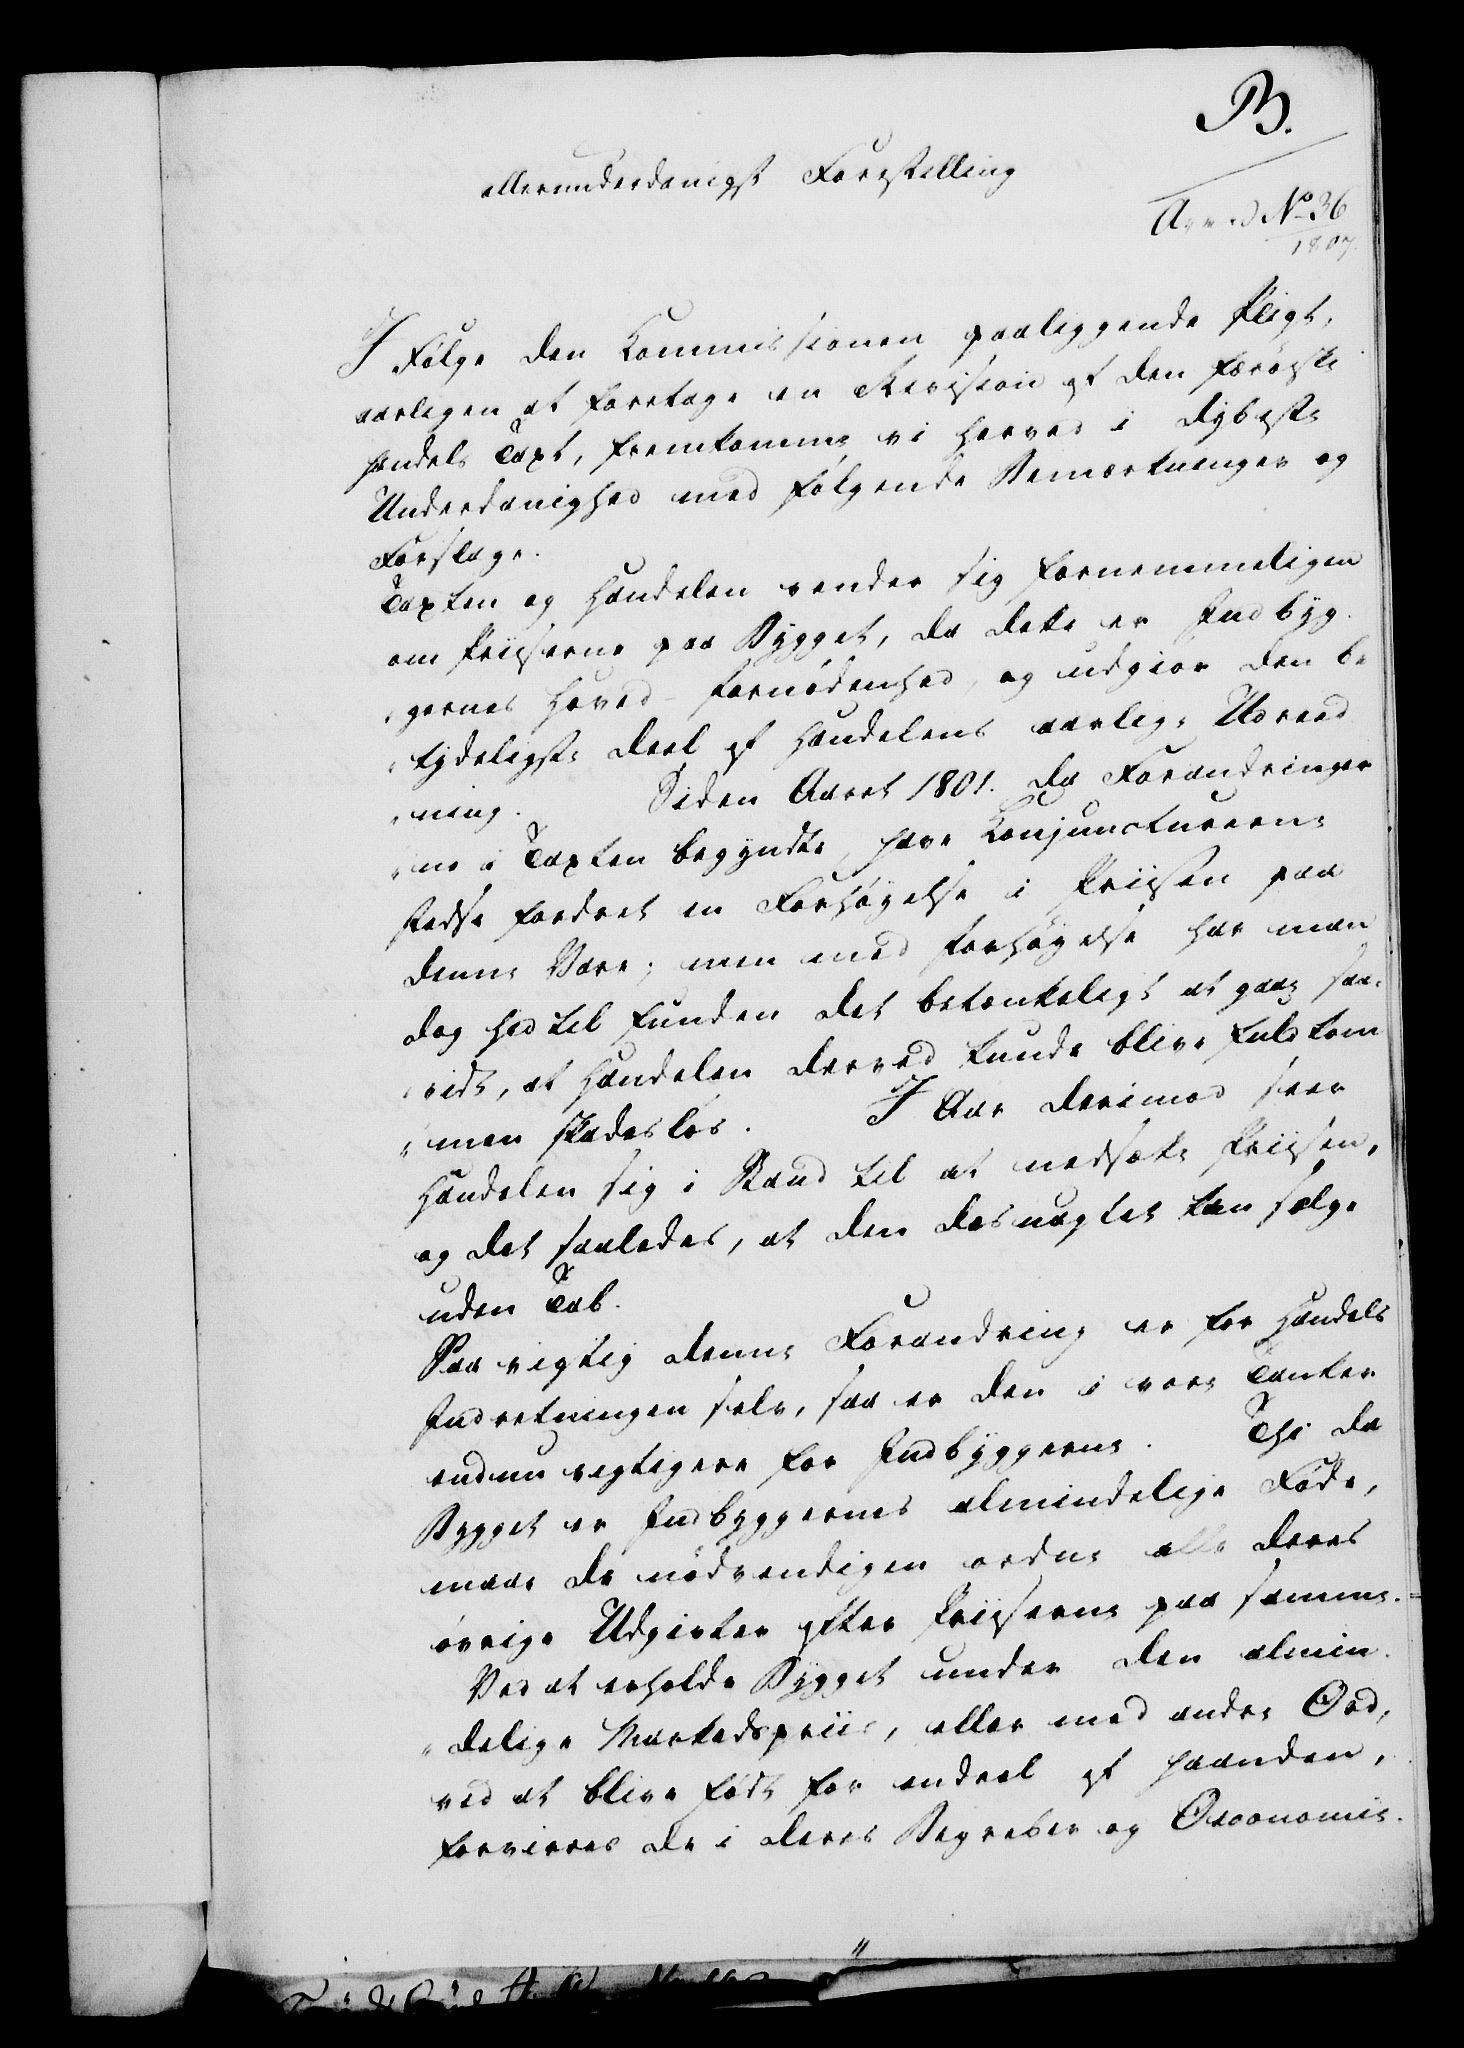 B.
allerunderdanigst Forestilling
No 36
1807.
I Følge den Kommissionen paaliggende Pligt,
aarligen at foretage en Revision af den færøiske
Handels Taxt, fremkomme vi herved i dybeste
Underdanighed med følgende Bemærkninger og
Forslage.
Taxten og Handelen vender sig fornemmeligen
om Priiserne paa Bygget, da dette er Indbyg-
gernes Hoved-Fornødenhed, og udgiør den be-
tydeligste Deel af Handelens aarlige Udreed-
ning. Siden Aaret 1801. da Forandringer-
ne i Taxten begyndte, have Konjuncturerne
stedse fordret en Forhøyelse i Priisen paa
denne Vare; men med Forhøyelse har man
dog hidtil funden det betænkeligt at gaae saa-
vidt, at Handelen derved kunde blive fuldkom-
men skadesløs. I Aar derimod seer
Handelen sig i Stand til at nedsætte Priisen,
og det saaledes, at den desuagtet kan sælge
uden Tab.
Saa vigtig denne Forandring er for Handels
Indretningen selv, saa er den i vore Tanker
endnu vigtigere for Indbyggerne. Thi da
Bygget er Indbyggernes almindelige Føde,
maae de nødvendigen ordne alle deres
øvrige Udgivter efter Priiserne paa samme.
Ved at erholde Bygget under den almin-
delige Markedspriis, eller med andre Ord,
ved at blive født for endeel af Haanden,
forvirres de i deres Begreber og Oeconomie.